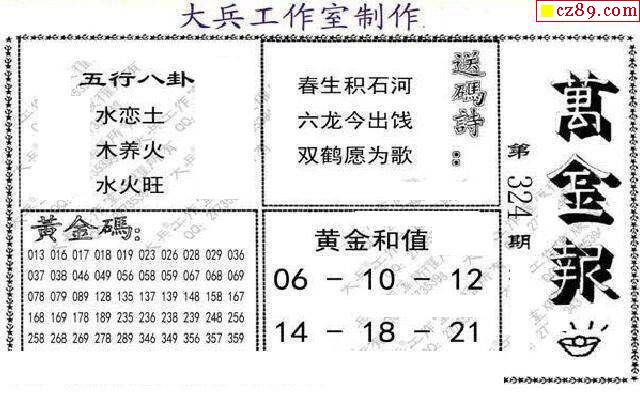 大兵工作室制作
cz89.com
五行八卦
水恋土
木养火
水火旺
春生积石河
六龙今出饯
双鹤愿为歌
送碼詩：
萬金報
第324期
黃金碼：
013 016 017 018 019 023 026 028 029 036
037 038 046 056 057 058 059 067 068 069
078 079 089 128 135 137 139 148 158 167
168 169 178 189 235 236 239 247 248 257
258 268 269 278 289 346 349 356 357 359
黄金和值
06 - 10 - 12
14 - 18 - 21